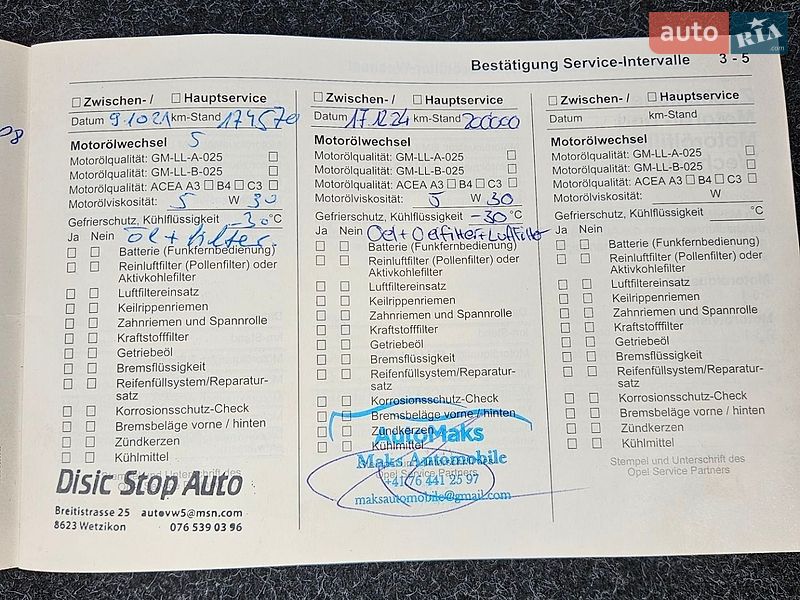 auto RIA .com
Bestätigung Service-Intervalle 3 - 5
08
☐ Zwischen- / ☐ Hauptservice
Datum 9.10 21 km-Stand 174570
Motorölwechsel 5
Motorölqualität: GM-LL-A-025 ☐
Motorölqualität: GM-LL-B-025 ☐
Motorölqualität: ACEA A3 ☐ B4 ☐ C3 ☐
Motorölviskosität: 5 W 30
Gefrierschutz, Kühlflüssigkeit -30 °C
Ja Nein Öl + filter
☐ ☐ Batterie (Funkfernbedienung)
☐ ☐ Reinluftfilter (Pollenfilter) oder
Aktivkohlefilter
☐ ☐ Luftfiltereinsatz
☐ ☐ Keilrippenriemen
☐ ☐ Zahnriemen und Spannrolle
☐ ☐ Kraftstofffilter
☐ ☐ Getriebeöl
☐ ☐ Bremsflüssigkeit
☐ ☐ Reifenfüllsystem/Reparatur-
satz
☐ ☐ Korrosionsschutz-Check
☐ ☐ Bremsbeläge vorne / hinten
☐ ☐ Zündkerzen
☐ ☐ Kühlmittel
Stempel und Unterschrift des
Disic Stop Auto
Breitistrasse 25 autovw5@msn.com
8623 Wetzikon 076 539 03 96
☐ Zwischen- / ☐ Hauptservice
Datum 17.12.24 km-Stand 200000
Motorölwechsel
Motorölqualität: GM-LL-A-025 ☐
Motorölqualität: GM-LL-B-025 ☐
Motorölqualität: ACEA A3 ☐ B4 ☐ C3 ☐
Motorölviskosität: 5 W 30
Gefrierschutz, Kühlflüssigkeit -30 °C
Ja Nein Oel + Oelfilter + Luftfilter
☐ ☐ Batterie (Funkfernbedienung)
☐ ☐ Reinluftfilter (Pollenfilter) oder
Aktivkohlefilter
☐ ☐ Luftfiltereinsatz
☐ ☐ Keilrippenriemen
☐ ☐ Zahnriemen und Spannrolle
☐ ☐ Kraftstofffilter
☐ ☐ Getriebeöl
☐ ☐ Bremsflüssigkeit
☐ ☐ Reifenfüllsystem/Reparatur-
satz
☐ ☐ Korrosionsschutz-Check
☐ ☐ Bremsbeläge vorne / hinten
☐ ☐ Zündkerzen
☐ ☐ Kühlmittel
AutoMaks
Maks Automobile
Opel Service Partners
+41 76 441 25 97
maksautomobile@gmail.com
☐ Zwischen- / ☐ Hauptservice
Datum km-Stand
Motorölwechsel
Motorölqualität: GM-LL-A-025 ☐
Motorölqualität: GM-LL-B-025 ☐
Motorölqualität: ACEA A3 ☐ B4 ☐ C3 ☐
Motorölviskosität: W
Gefrierschutz, Kühlflüssigkeit °C
Ja Nein
☐ ☐ Batterie (Funkfernbedienung)
☐ ☐ Reinluftfilter (Pollenfilter) oder
Aktivkohlefilter
☐ ☐ Luftfiltereinsatz
☐ ☐ Keilrippenriemen
☐ ☐ Zahnriemen und Spannrolle
☐ ☐ Kraftstofffilter
☐ ☐ Getriebeöl
☐ ☐ Bremsflüssigkeit
☐ ☐ Reifenfüllsystem/Reparatur-
satz
☐ ☐ Korrosionsschutz-Check
☐ ☐ Bremsbeläge vorne / hinten
☐ ☐ Zündkerzen
☐ ☐ Kühlmittel
Stempel und Unterschrift des
Opel Service Partners